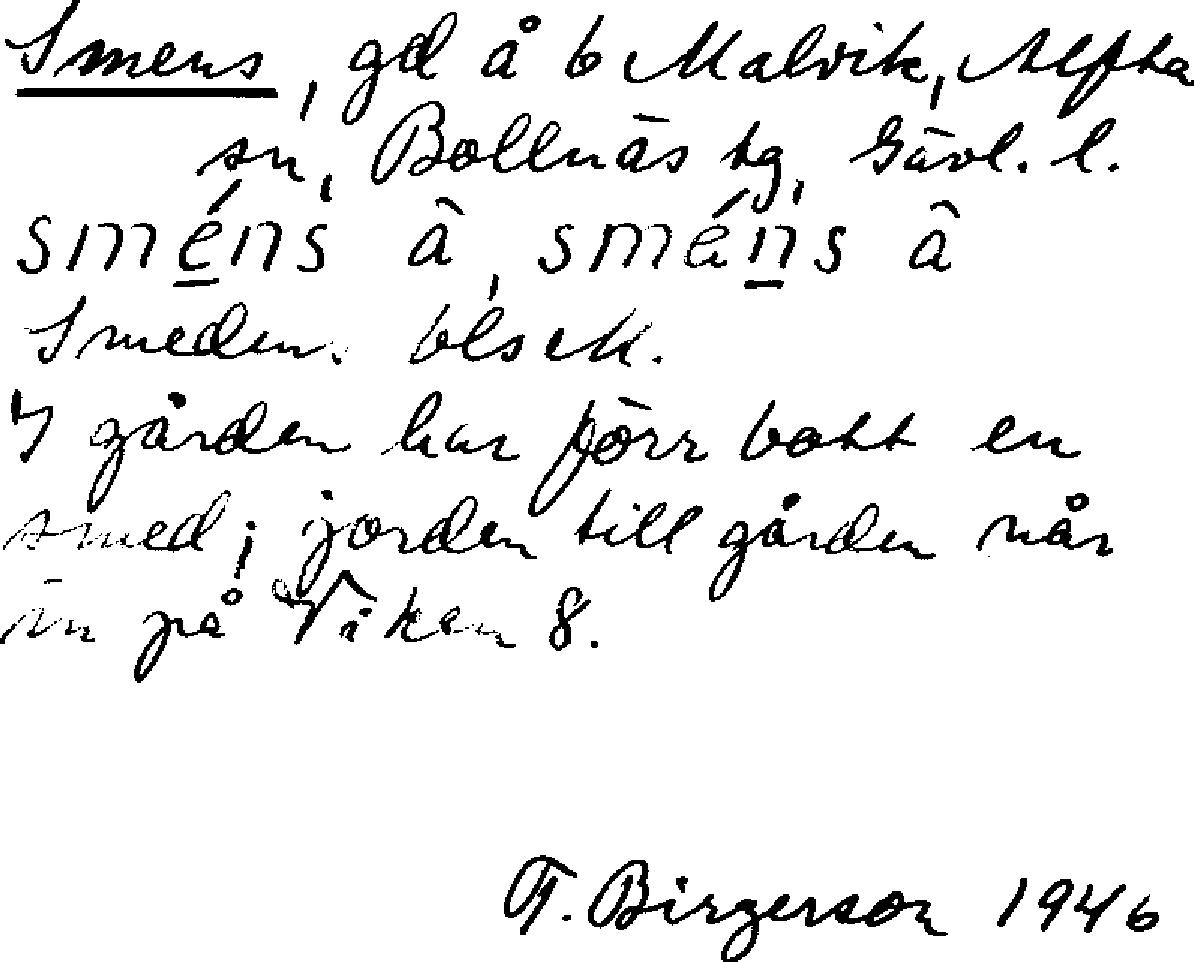 Smens, gd å 6 Malvik, Alfta
sn, Bollnäs tg, Gävl. l.
sméns â, smáns â
Smeden. bls ell.
I gården har förr bott en
smed; jorden till gården når
in på Viken 8.
T. Birgerson 1946